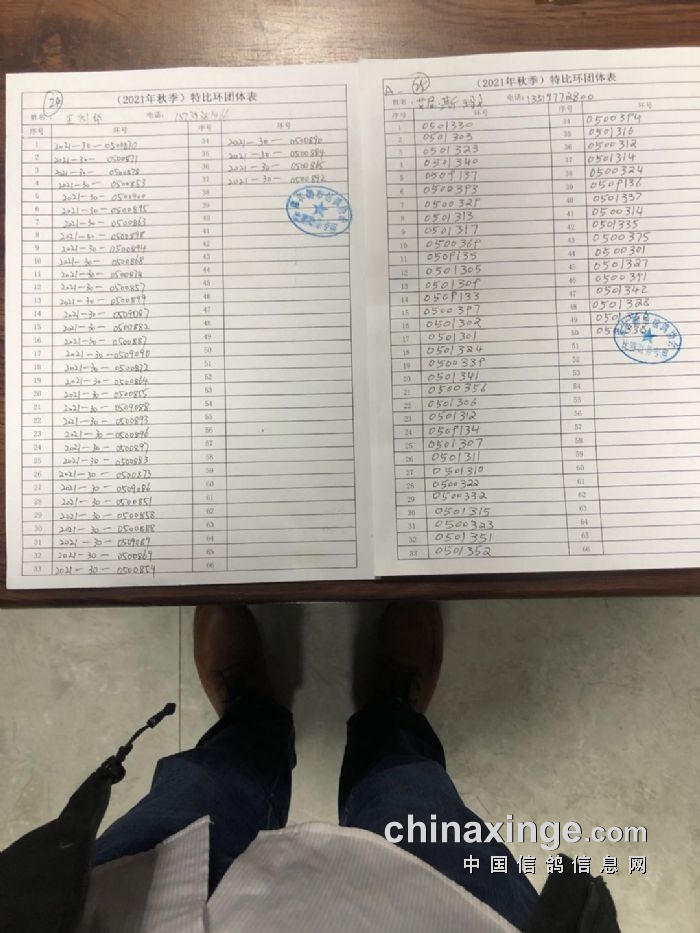 24
(2021年秋季) 特比环团体表
姓名: 电话:
序号 环号 序号 环号
1 2021-30-0500870 34 2021-30-0500890
2 2021-30-0500871 35 2021-30-0500884
3 2021-30-0500878 36 2021-30-0500885
4 2021-30-0500853 37 2021-30-0500892
5 2021-30-0500900 38
6 2021-30-0500895 39
7 2021-30-0500863 40
8 2021-30-0500898 41
9 2021-30-0500894 42
10 2021-30-0500868 43
11 2021-30-0500874 44
12 2021-30-0500857 45
13 2021-30-0500899 46
14 2021-30-0509087 47
15 2021-30-0500882 48
16 2021-30-0500887 49
17 2021-30-0509090 50
18 2021-30-0500872 51
19 2021-30-0500864 52
20 2021-30-0500855 53
21 2021-30-0509088 54
22 2021-30-0500893 55
23 2021-30-0500896 56
24 2021-30-0500897 57
25 2021-30-0500883 58
26 2021-30-0500873 59
27 2021-30-0509086 60
28 2021-30-0500851 61
29 2021-30-0500858 62
30 2021-30-0500888 63
31 2021-30-0509089 64
32 2021-30-0500869 65
33 2021-30-0500854 66
A- 25
(2021年秋季) 特比环团体表
姓名: 电话: 13319772800
序号 环号 序号 环号
1 0501330 34 0500394
2 0501303 35 0501316
3 0501323 36 0500312
4 0501340 37 0501314
5 0509137 38 0500324
6 0500393 39 0509136
7 0500329 40 0501337
8 0501313 41 0500314
9 0501317 42 0501335
10 0500369 43 0500375
11 0509135 44 0500301
12 0501305 45 0501327
13 0501309 46 0500391
14 0509133 47 0501342
15 0500397 48 0501328
16 0501302 49
17 0501301 50
18 0501324 51
19 0500339 52
20 0501341 53
21 0500356 54
22 0501306 55
23 0501312 56
24 0509134 57
25 0501307 58
26 0501311 59
27 0501310 60
28 0500322 61
29 0500332 62
30 0501315 63
31 0500323 64
32 0501351 65
33 0501352 66
chinaxinge.com
中国信鸽信息网